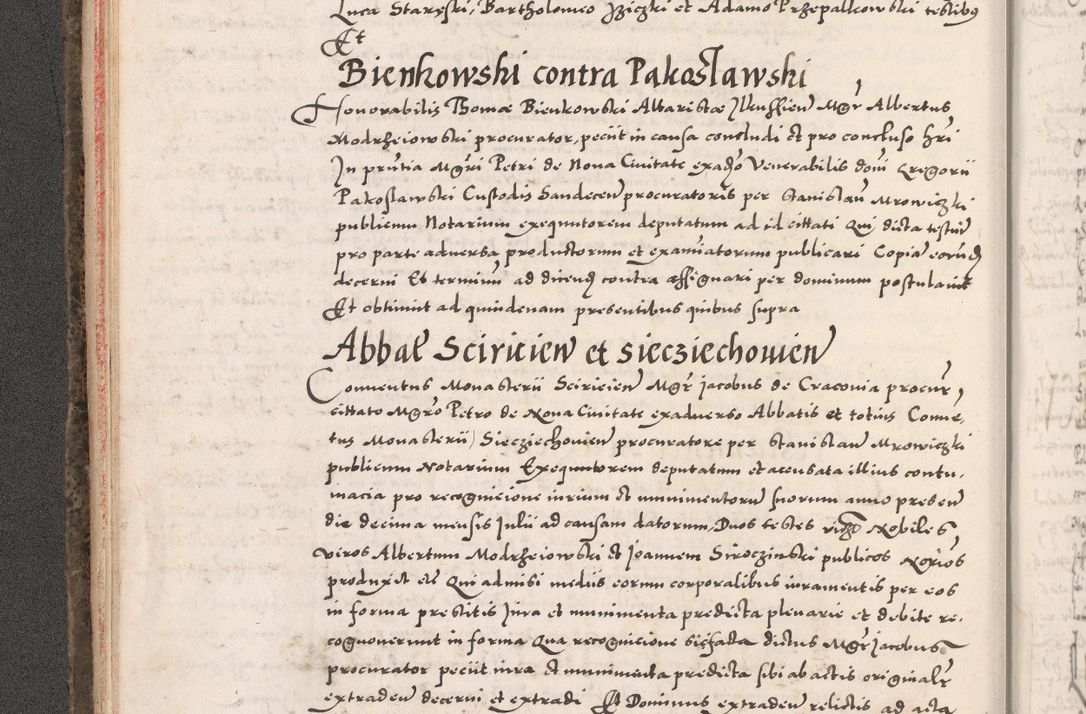 Luca Staręski, Bartholomeo Jziczki et Adamo Przepalkowski testibus
Et
Bienkowski contra Pakoslawski
Honorabilis Thomæ Bienkowski Altaristæ Mgr Albertus
Modrzeiowski procurator, peciit in causa concludi et pro concluso hri
In prntia Mgri Petri de Nova Civitate exadvo Venerabilis domi Gregorii
Pakoslawski Custodis Sandecen procuratoris per Stanislau Mrowiczki
publicum Notarium exequutorem deputatum ad id cittati Qui dicta testium
pro parte adversa productorum et examinatorum publicari Copia eorund
decerni Et terminu ad dicend contra assignari per dominum postulavit
Et obtinuit ad quindenam presentibus quibus supra
Abbat Sciricien et Siecziechovien
Conventus Monasterii Sciricien Mgr Jacobus de Cracovia procur,
cittato Mgro Petro de Nova Civitate exadverso Abbatis et totius Conve,
tus Monasterii Siecziechovien procuratore per Stanislau Mrowiczki
publicum Notarium Exequutorem deputatum et accusata illius contu,
macia pro recognicione iurium et munimentoru suorum anno presen
die decima mensis Julii ad causam datorum, Duos testes Nobiles
viros Albertum Modrzeiowski et Joannem Siroczinski publicos Norios
produxit etc Qui admissi mediis eorum corporalibus iuramentis per eos
in forma prestitis Jura et munimenta predicta plenarie et debite re,
cognoverunt in forma Qua recognicione sicfacta dictus Mgr Jacobus
procurator peciit iura et munimenta predicta sibi ab actis originalr
extraden decerni et extradi Et Dominus extraden relictis ad acta